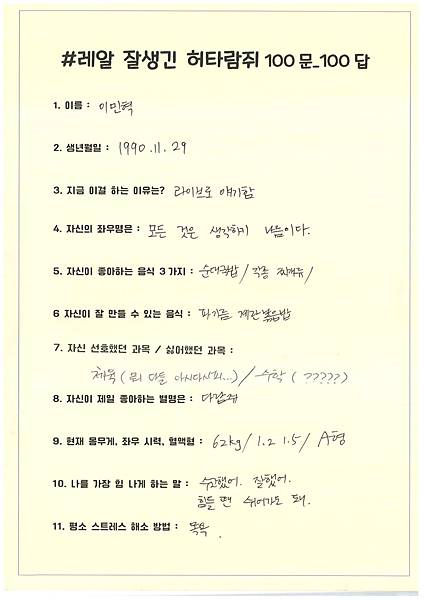 #레알 잘생긴 허타람쥐 100 문_100 답
1. 이름 : 이민혁
2. 생년월일 : 1990. 11. 29
3. 지금 이걸 하는 이유는? 라이브로 얘기함
4. 자신의 좌우명은 : 모든 것은 생각하기 나름이다.
5. 자신이 좋아하는 음식 3 가지 : 순대국밥 / 각종 찌개류 /
6 자신이 잘 만들 수 있는 음식 : 파기름 계란볶음밥
7. 자신 선호했던 과목 / 싫어했던 과목 :
체육 (뭐 다들 아시다시피...) / 수학 ( ????? )
8. 자신이 제일 좋아하는 별명은 : 다람쥐
9. 현재 몸무게, 좌우 시력, 혈액형 : 62kg / 1.2 1.5 / A형
10. 나를 가장 힘 나게 하는 말 : 수고했어. 잘했어.
힘들 땐 쉬어가도 돼.
11. 평소 스트레스 해소 방법 : 목욕.